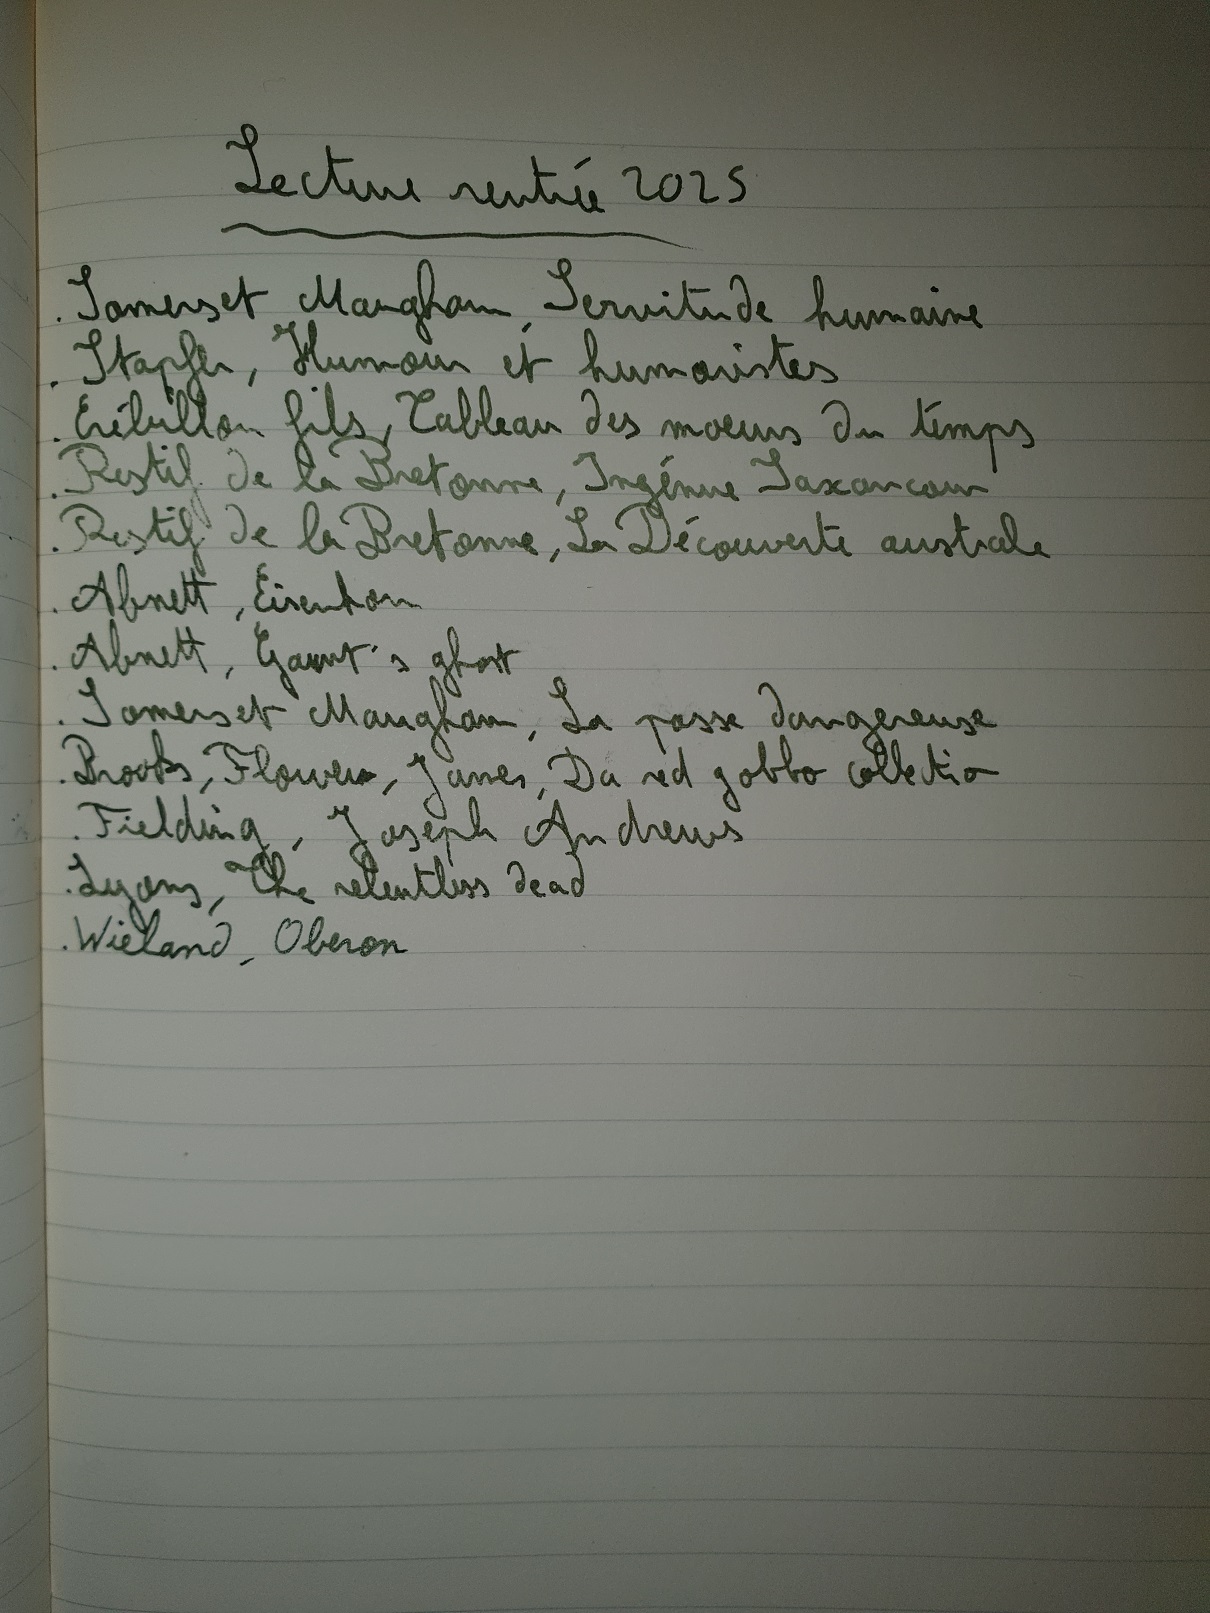 Lecture rentrée 2025
. Somerset Maugham, Servitude humaine
. Stapfer, Humour et humoristes
. Crébillon fils, Tableau des moeurs du temps
. Restif de la Bretonne, Ingénue Saxancour
. Restif de la Bretonne, La Découverte australe
. Abnett, Eisenhorn
. Abnett, Gaunt's ghost
. Somerset Maugham, La passe dangereuse
. Brooks, Flowers, James, Da red gobbo collectio
. Fielding, Joseph Andrews
. Lyons, The relentless dead
. Wieland, Oberon